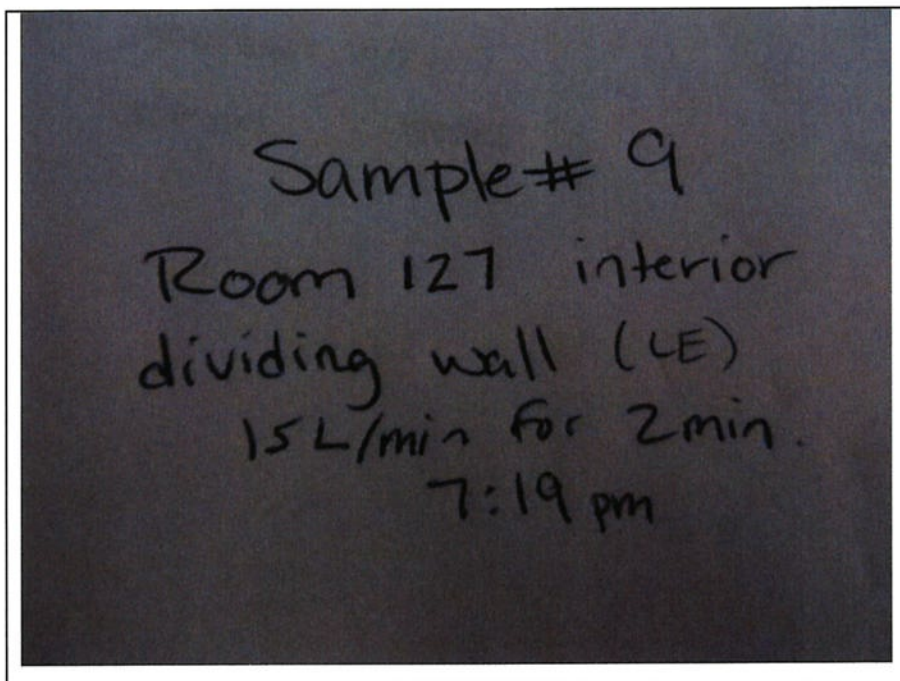 Sample# 9
Room 127 interior
dividing wall (LE)
15L/min for 2min.
7:19 pm